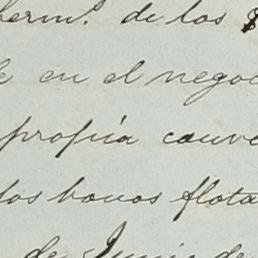 de los
en el negoc
propia conve
los bonos flota
de Junio de